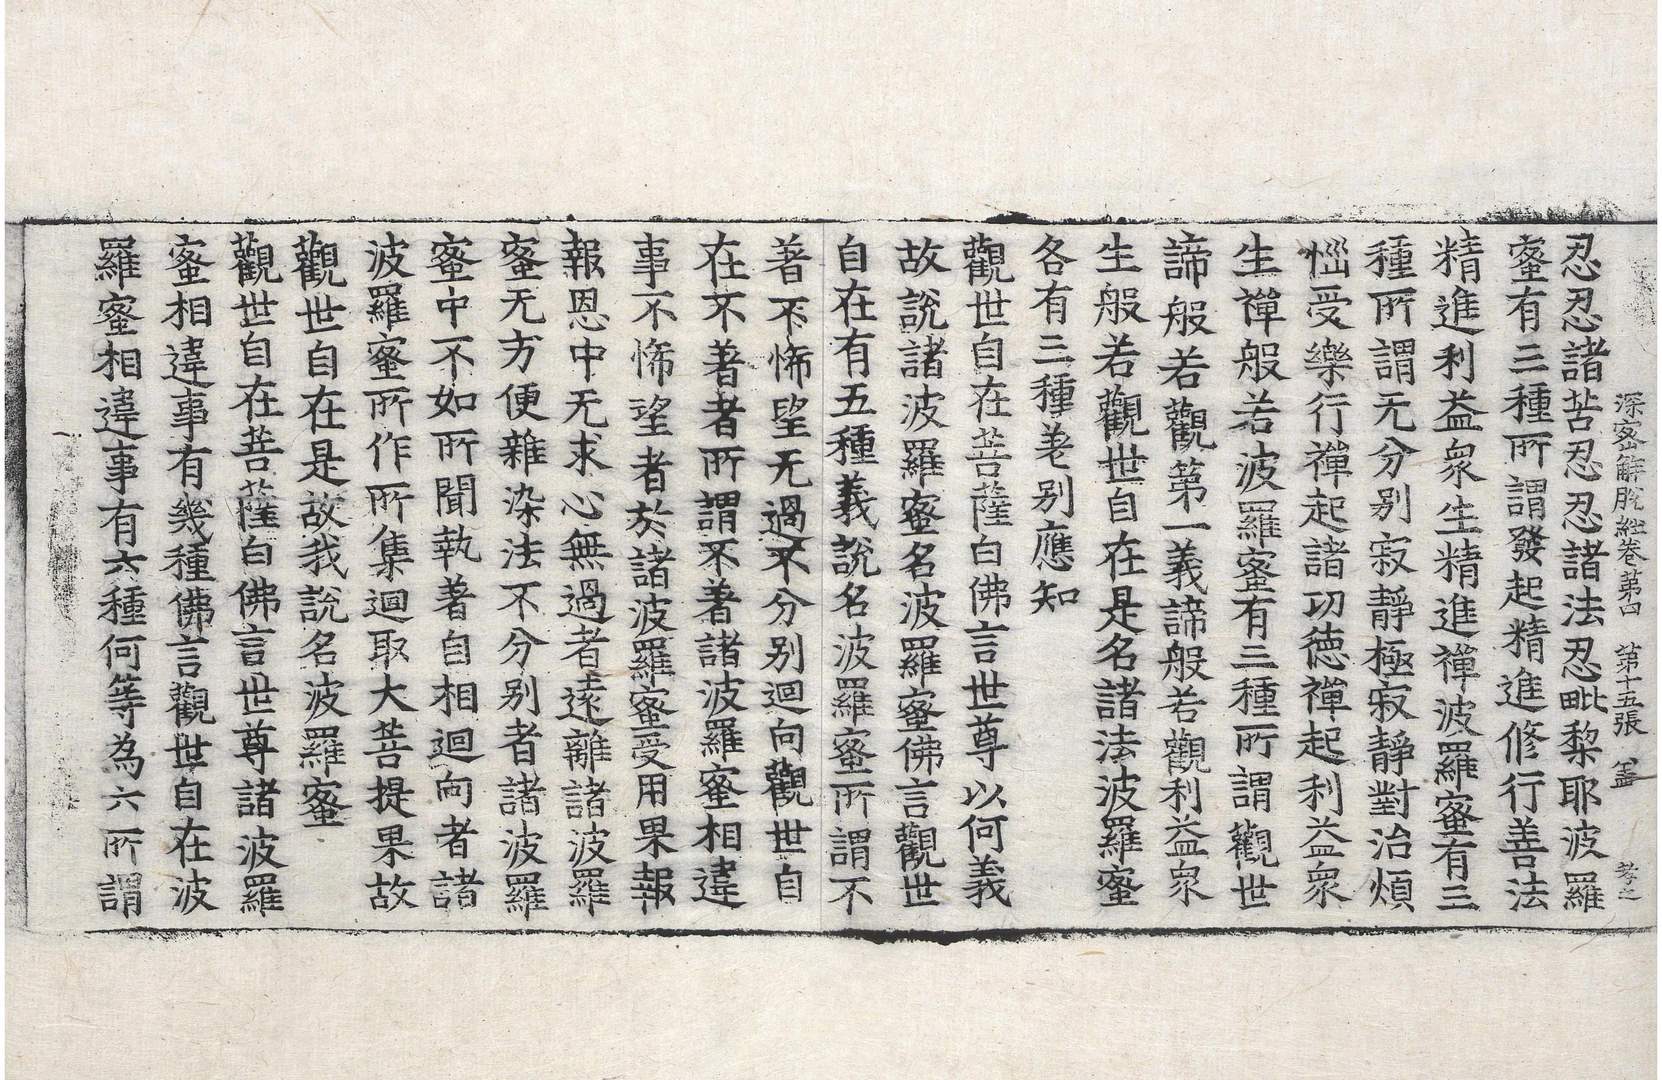 深密解脫經卷第四 第十五張 盖 孝之
忍忍諸苦忍忍諸法忍毗黎耶波羅
蜜有三種所謂發起精進修行善法
精進利益衆生精進禪波羅蜜有三
種所謂无分别寂靜極寂靜對治煩
惱受樂行禪起諸功德禪起利益衆
生禪般若波羅蜜有三種所謂觀世
諦般若觀第一義諦般若觀利益衆
生般若觀世自在是名諸法波羅蜜
各有三種差别應知
觀世自在菩薩白佛言世尊以何義
故說諸波羅蜜名波羅蜜佛言觀世
自在有五種義說名波羅蜜所謂不
著不悕望无過不分别迴向觀世自
在不著者所謂不著諸波羅蜜相違
事不悕望者於諸波羅蜜受用果報
報恩中无求心無過者遠離諸波羅
蜜无方便雜染法不分别者諸波羅
蜜中不如所聞執著自相迴向者諸
波羅蜜所作所集迴取大菩提果故
觀世自在是故我說名波羅蜜
觀世自在菩薩白佛言世尊諸波羅
蜜相違事有幾種佛言觀世自在波
羅蜜相違事有六種何等為六所謂